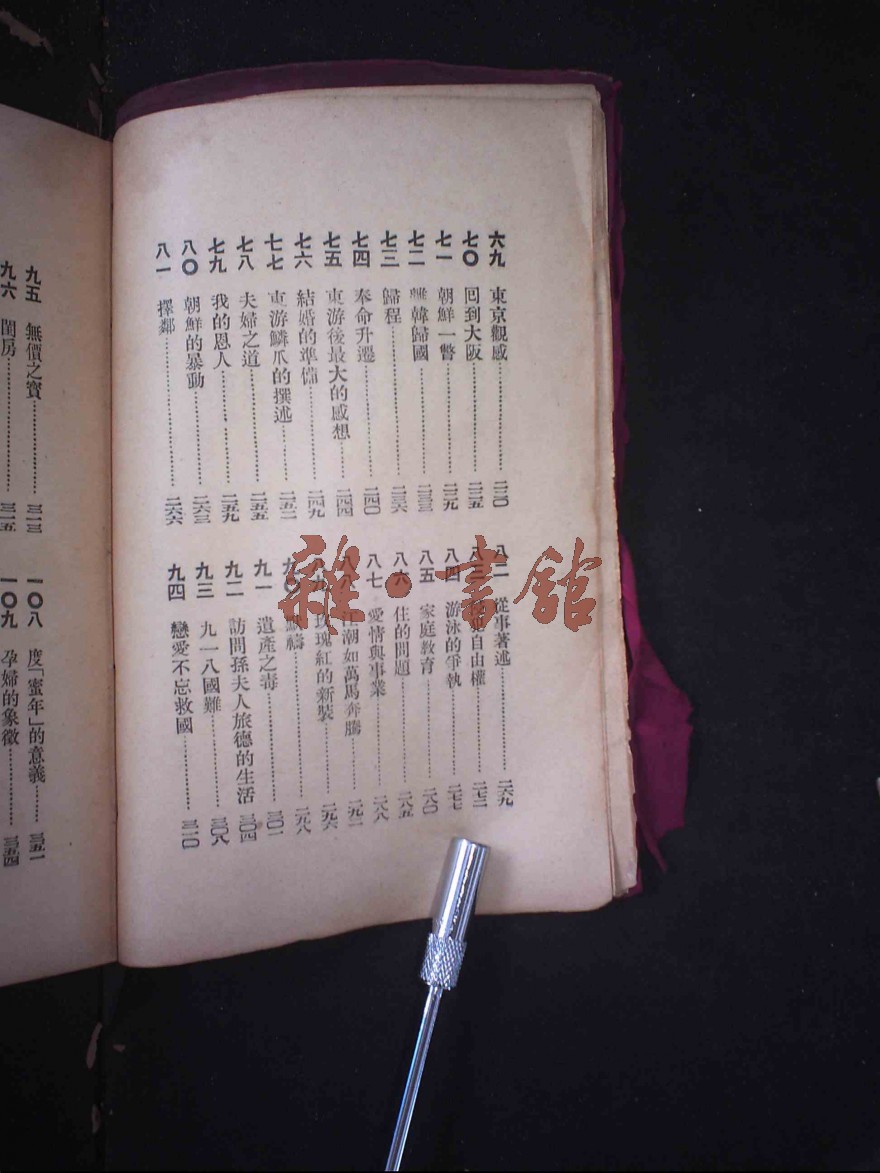 六九 東京觀感 二二〇
七〇 回到大阪 二二五
七一 朝鮮一瞥 二二九
七二 離韓歸國 二三三
七三 歸程 二三六
七四 奉命升遷 二四〇
七五 東游後最大的感想 二四四
七六 結婚的準備 二四九
七七 東游鱗爪的撰述 二五二
七八 夫婦之道 二五五
七九 我的恩人 二五九
八〇 朝鮮的暴動 二六三
八一 擇鄰 二六六
八二 從事著述 二六九
八三 犯自由權 二七二
八四 游泳的爭執 二七七
八五 家庭教育 二八〇
八六 住的問題 二八五
八七 愛情與事業 二八八
八八 江潮如萬馬奔騰 二九二
八九 玫瑰紅的新裝 二九六
九〇 默禱 二九八
九一 遺產之毒 三〇一
九二 訪問孫夫人旅德的生活 三〇四
九三 九一八國難 三〇八
九四 戀愛不忘救國 三一〇
九五 無價之寶 三一三
九六 閨房 三一五
一〇八 度「蜜年」的意義 三五一
一〇九 孕婦的象徵 三五四
雜·書館